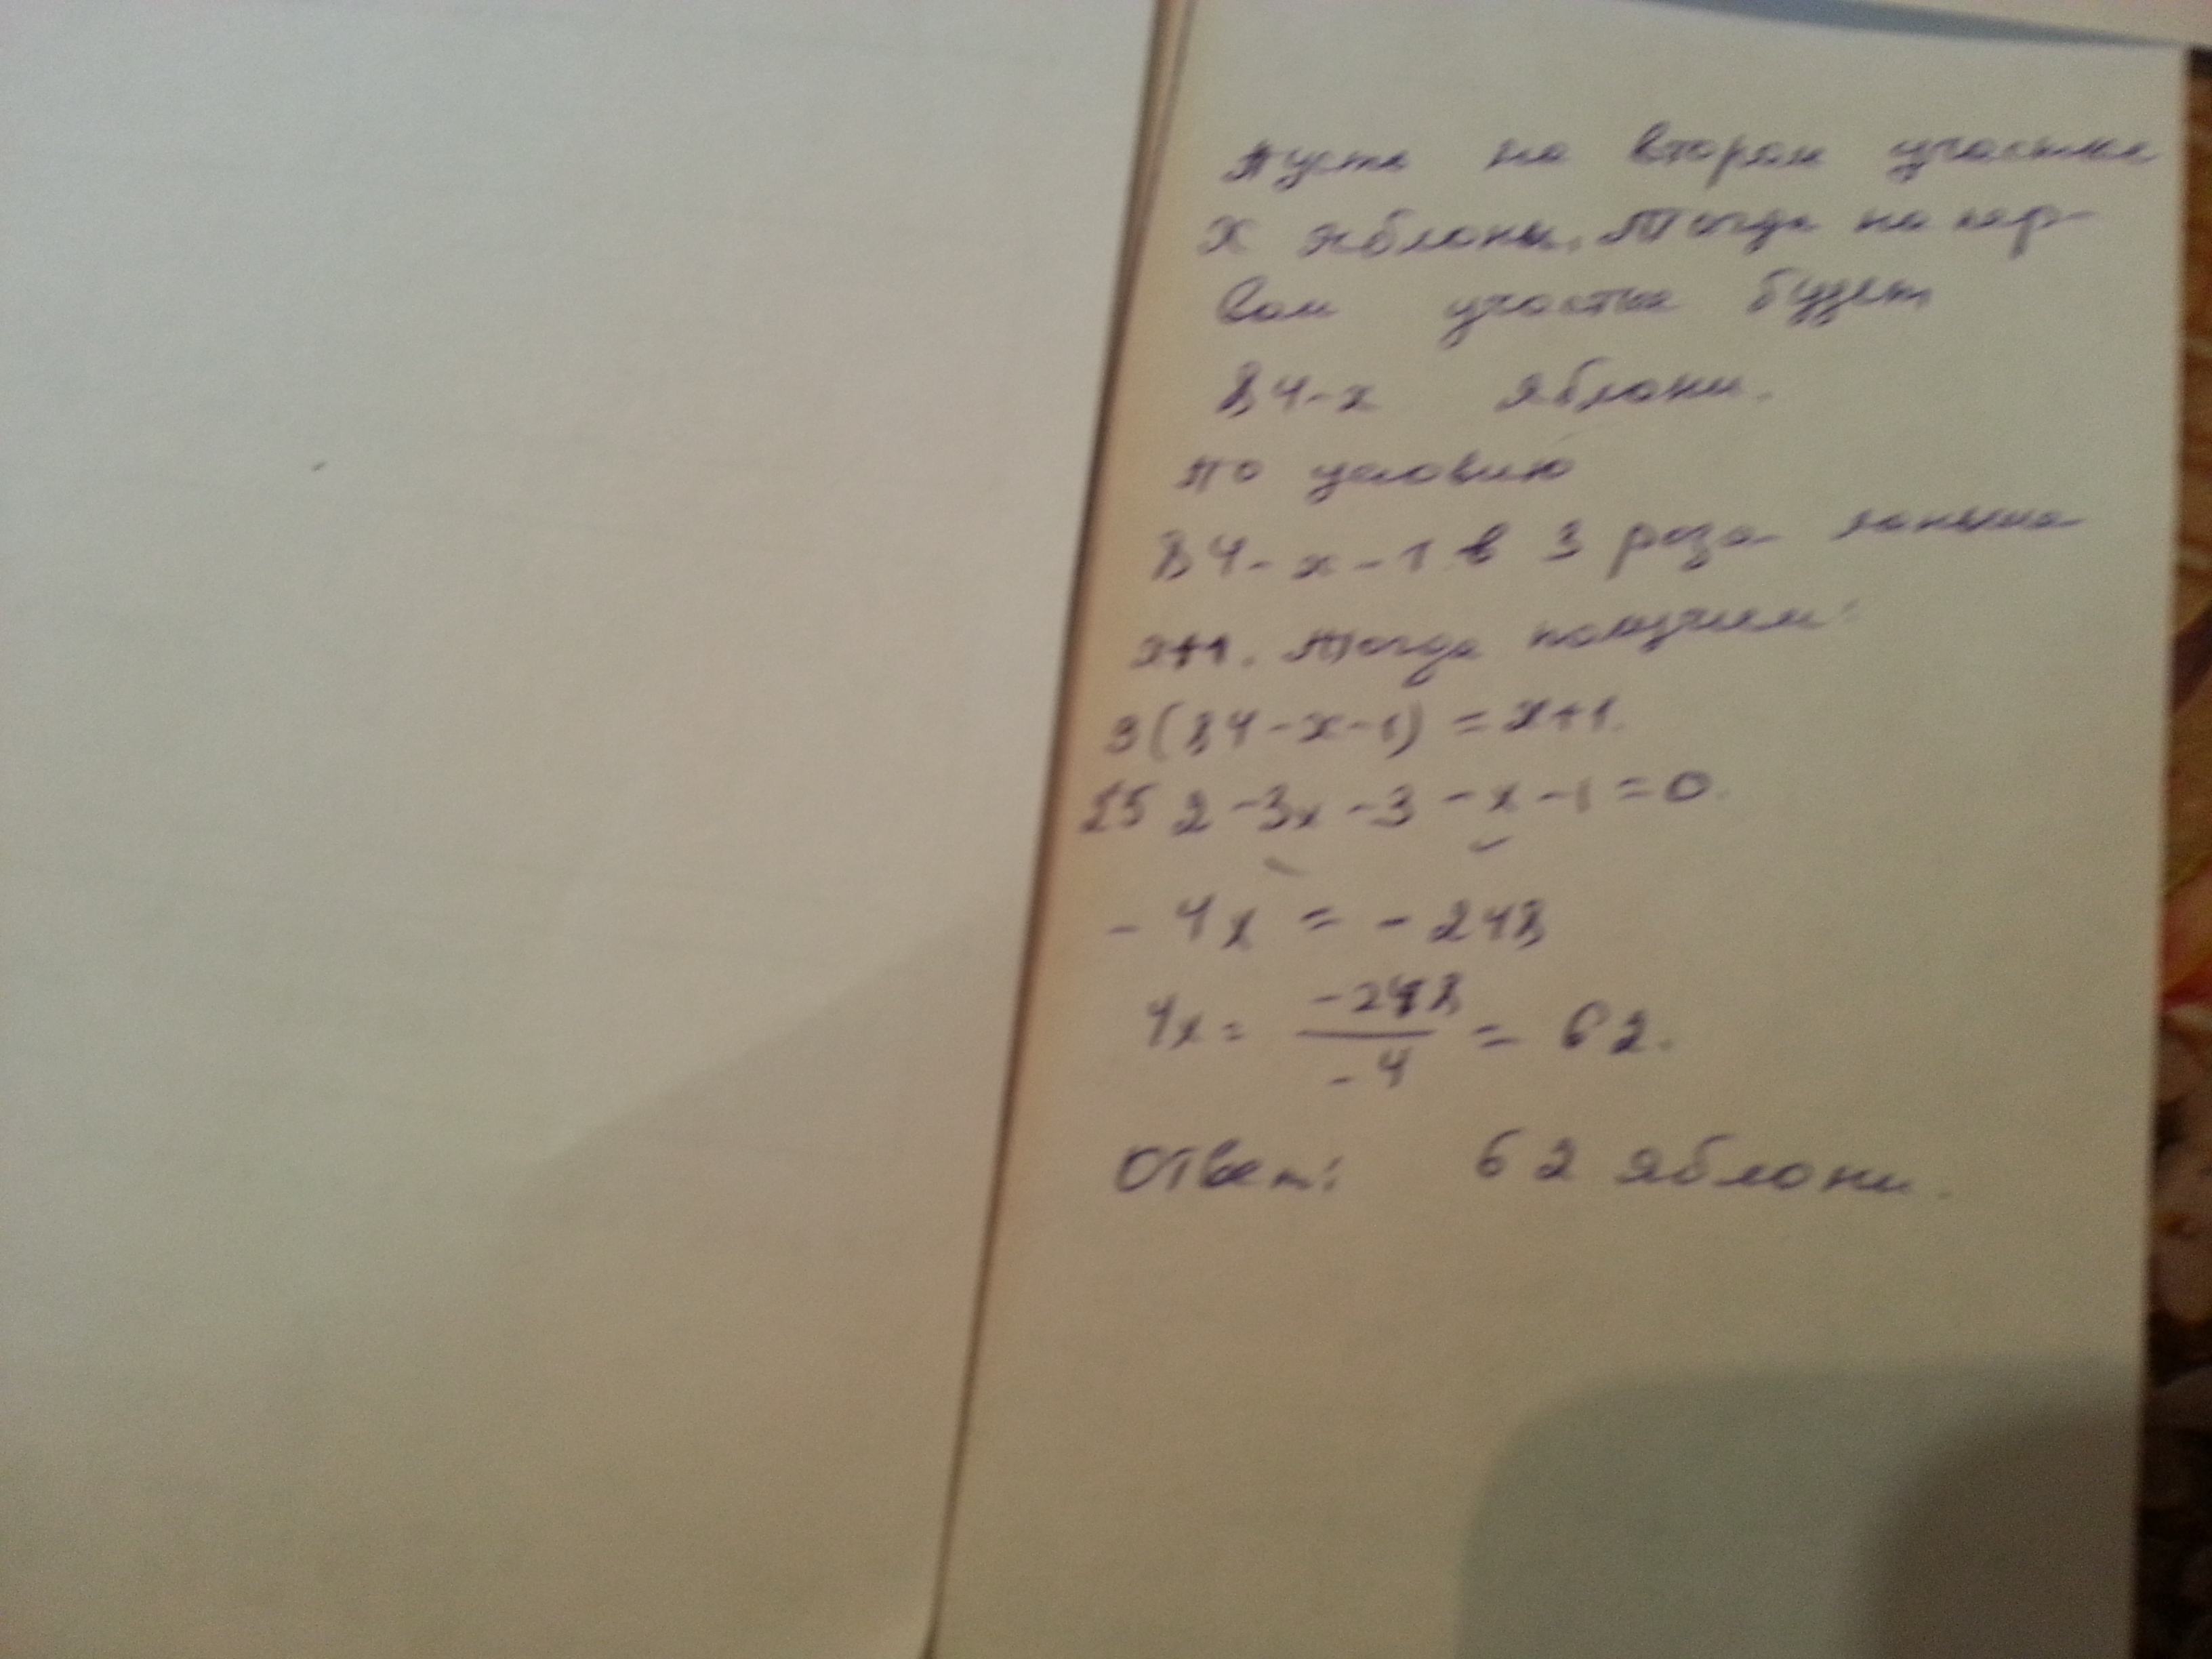 Пусть на втором участке
x яблонь. Тогда на пер-
вом участке будет
84-x яблони.
По условию
84-x-1 в 3 раза меньше
x+1. Тогда получаем:
3(84-x-1) = x+1.
252-3x-3-x-1=0.
-4x = -248
4x = -248/-4 = 62.
Ответ: 62 яблони.